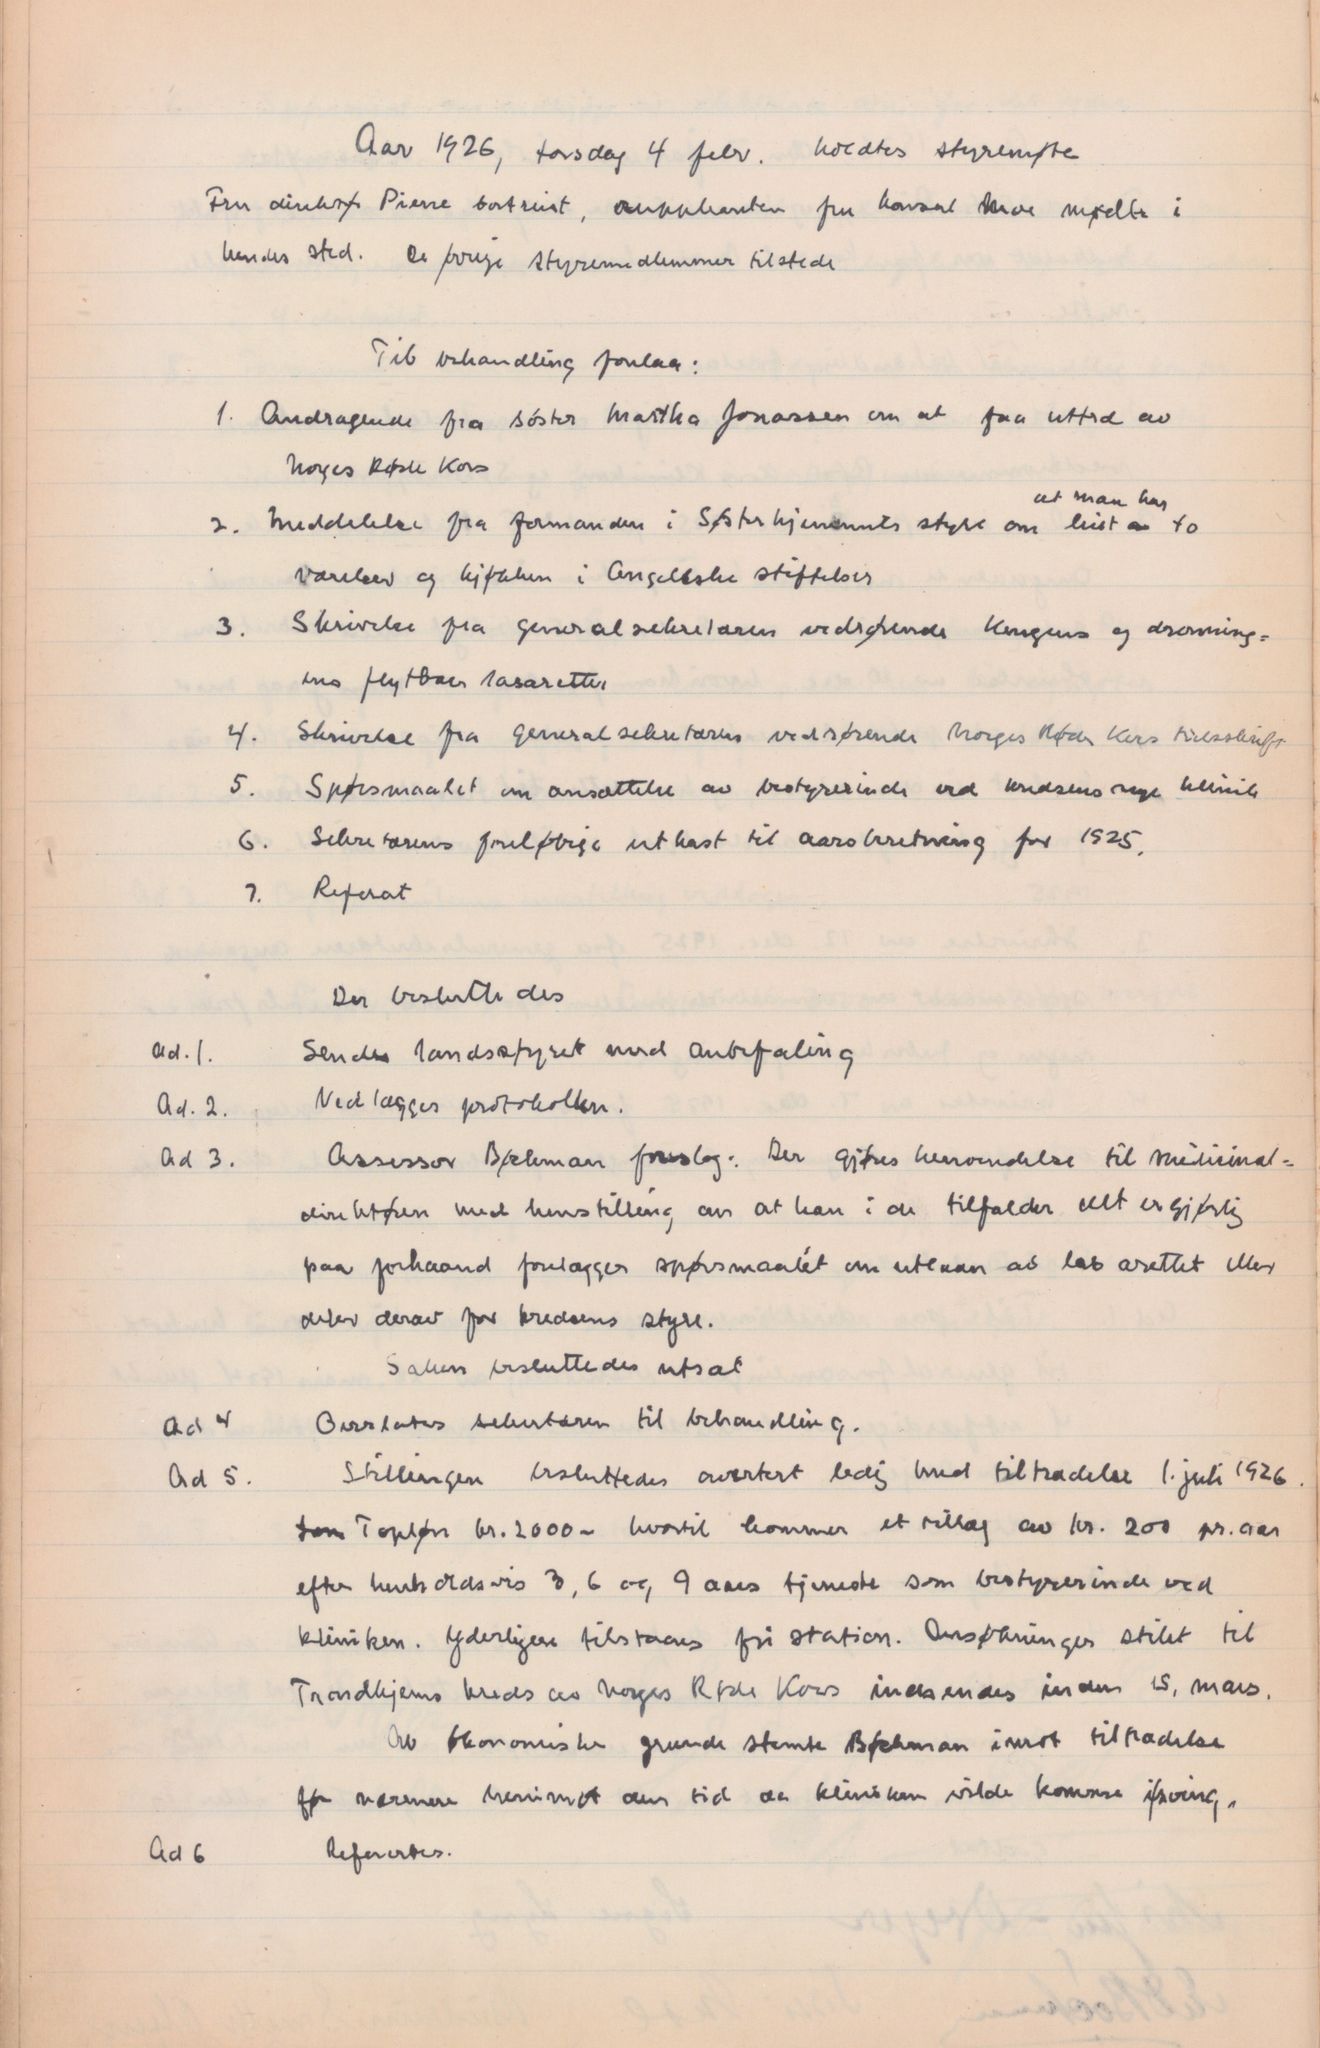 Aar 1926, torsdag 4 febr. holdtes styremøte
Fru direktør Pierre bortreist, supplianten fru konsul Moe mødte i
hendes sted. De øvrige styremedlemmer tilstede
Til behandling forelaa:
1. Andragende fra søster Martha Jonassen om at faa uttræ av
Norges Røde Kors
2. Meddelelse fra formanden i Søsterhjemmets styre om at man har leiet to
værelser og kjøkken i Angellske stiftelser
3. Skrivelse fra generalsekretæren vedrørende Kongens og dronning=
ens flytbare lasaretter
4. Skrivelse fra generalsekretæren vedrørende Norges Røde Kors tidsskrift
5. Spørsmaalet om ansættelse av bestyrerinde ved kredsens nye klinik
6. Sekretærens foreløbige utkast til aarsberetning for 1925.
7. Referat
Der besluttedes
Ad. 1. Sendes landsstyret med anbefaling
Ad. 2. Vedlægges protokollen.
Ad 3. Assessor Bøckman foreslog: Der gjøres henvendelse til Medicinal=
direktøren med henstilling om at han i de tilfælder det er gjørlig
paa forhaand forelægger spørsmaalet om utlaan av lasarettet eller
deler derav for kredsens styre.
Saken besluttedes utsat
Ad 4 Overlates sekretæren til behandling.
Ad 5. Stillingen besluttedes avertert ledig med tiltrædelse 1. juli 1926.
Topløn kr. 2000- hvortil kommer et tillæg av kr. 200 pr. aar
efter henholdsvis 3, 6 og 9 aars tjeneste som bestyrerinde ved
kliniken. Yderligere tilstaaes fri station. Ansøkninger stilet til
Trondhjems kreds av Norges Røde Kors indsendes inden 15. mars.
Av økonomiske grunde stemte Bøckman imot tiltrædelse
før nærmere henimot den tid da kliniken vilde komme igang.
Ad 6 Refereres.